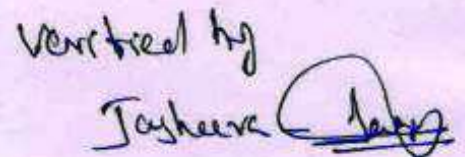 Verified by
Jayheera